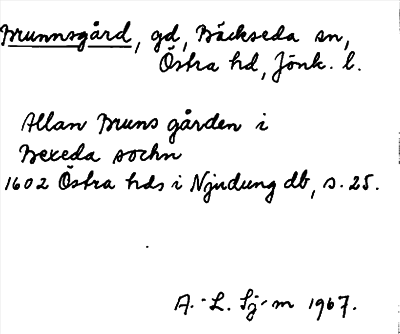 Brunnsgård, gd, Bäckseda sn,
Östra hd, Jönk. l.
Allan Bruns gården i
Bexeda sochn
1602 Östra hds i Njudung db, s. 25.
A.-L. Sj-m 1967.